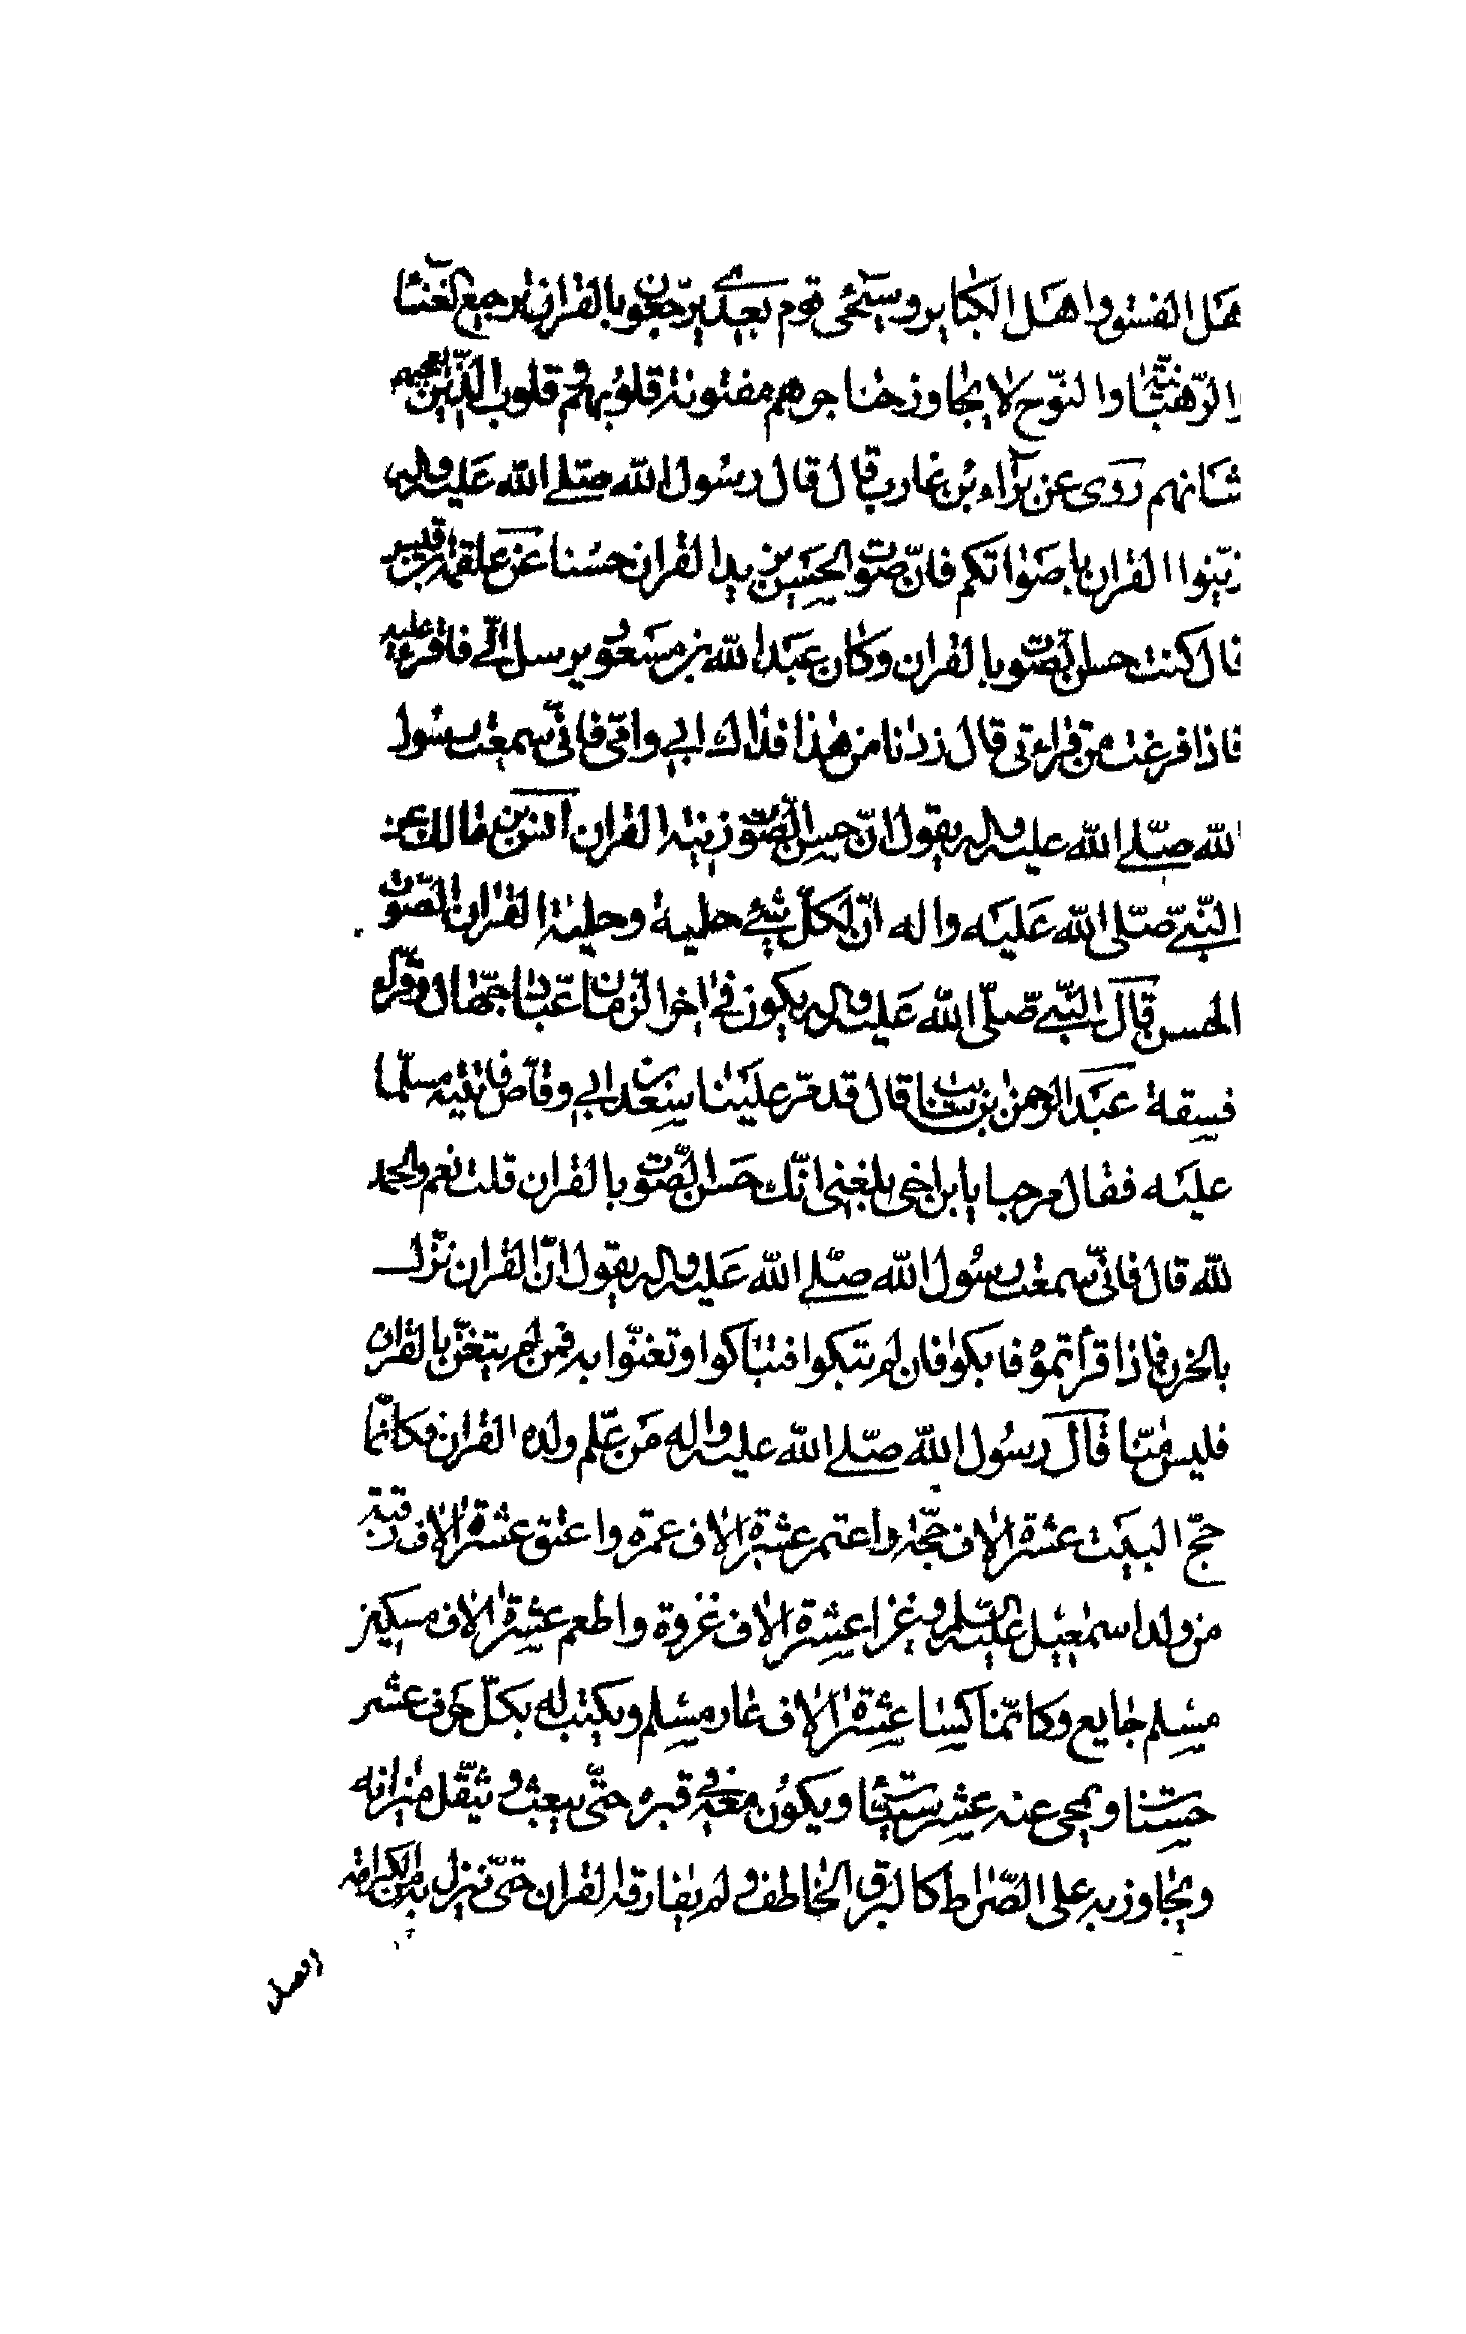 هل الفسق واهل الكباير وسيجئ قوم بعدي يرجعون بالقران ترجيع الغنا
والرهبانية والنوح لا يجاوز حناجرهم مفتونة قلوبهم وقلوب الذين يعجبهم
شانهم روى عن براء بن عازب قال قال رسول الله صلى الله عليه واله
زينوا القران باصواتكم فانّ صوت الحسن يزيد القران حسنا عن علقمة بن قيس
قال كنت حسن الصوت بالقران وكان عبد الله بن مسعود يرسل الىّ فاقرء عليه
فاذا فرغت من قراءتى قال زدنا من هذا فداك ابي وامّى فانّى سمعت رسول
الله صلّى الله عليه واله يقول انّ حسن الصّوت زينة القران انس بن مالك عن
النّبيّ صلّى الله عليه واله انّ لكلّ شيء حلية وحلية القران الصّوت
الحسن قال النّبيّ صلّى الله عليه واله يكون في اخر الزمان عبّاد جهّال وقرّاء
فسقة عبد الرحمن بن سائب قال قدم علينا سعد بن ابي وقاص فاتيته مسلّما
عليه فقال مرحبا يابن اخي بلغنى انّك حسن الصّوت بالقران قلت نعم والحمد
لله قال فانّى سمعت رسول الله صلّى الله عليه واله يقول انّ القران نزل
بالحزن فاذا قرأتموه فابكوا فان لم تبكوا فتباكوا وتغنّوا به فمن لم يتغنّ بالقران
فليس منّا قال رسول الله صلّى الله عليه واله من علّم ولده القران فكانّما
حجّ البيت عشرة الاف حجّة واعتمر عشرة الاف عمرة واعتق عشرة الاف رقبة
من ولد اسمعيل عليه السّلم وغزا عشرة الاف غزوة واطعم عشرة الاف مسكين
مسلم جايع وكانّما كسا عشرة الاف عار مسلم ويكتب له بكلّ حرف عشر
حسنات ويمحى عنه عشر سيّئات ويكون معه في قبره حتّى يبعث ويثقّل ميزانه
ويجاوز به على الصّراط كالبرق الخاطف ولم يفارقه القران حتّى ينزل به من الكرامة
افضل